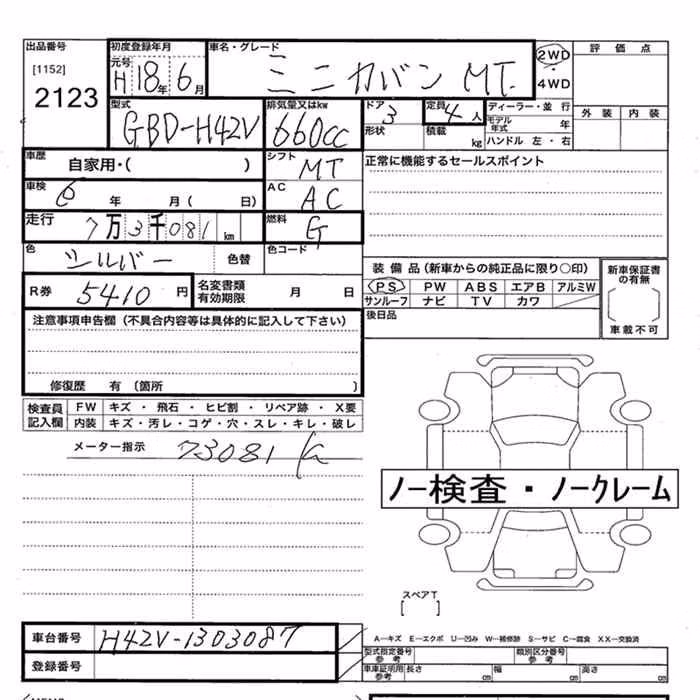 出品番号
[1152]
2123
初度登録年月
元号
H 18年 6月
車名・グレード
ミニカバン MT.
2WD
・
4WD
評価点
外装 内装
型式
GBD-H42V
排気量又はkw
660cc
ドア
3
形状
定員
4人
積載 kg
ディーラー・並行
モデル年式 年
ハンドル 左・右
車歴
自家用・( )
シフト
MT
正常に機能するセールスポイント
車検
6年 月( 日)
AC
AC
走行
7万3千081km
燃料
G
色
シルバー 色替
色コード
装備品(新車からの純正品に限り○印)
PS PW ABS エアB アルミW
サンルーフ ナビ TV カワ
新車保証書の有無
車載不可
R券 5410円
名変書類有効期限 月 日
後日品
注意事項申告欄(不具合内容等は具体的に記入して下さい)
修復歴 有 〔箇所 〕
検査員記入欄
FW キズ・飛石・ヒビ割・リペア跡・X要
内装 キズ・汚レ・コゲ・穴・スレ・キレ・破レ
メーター指示 73081 K
ノー検査・ノークレーム
スペアT
[ ]
車台番号 H42V-1303087
登録番号
A―キズ E―エクボ U―凹み W―補修跡 S―サビ C―腐食 XX―交換済
型式指定番号参考
類別区分番号参考
車車証明用参考 長さ cm 幅 cm 高さ cm